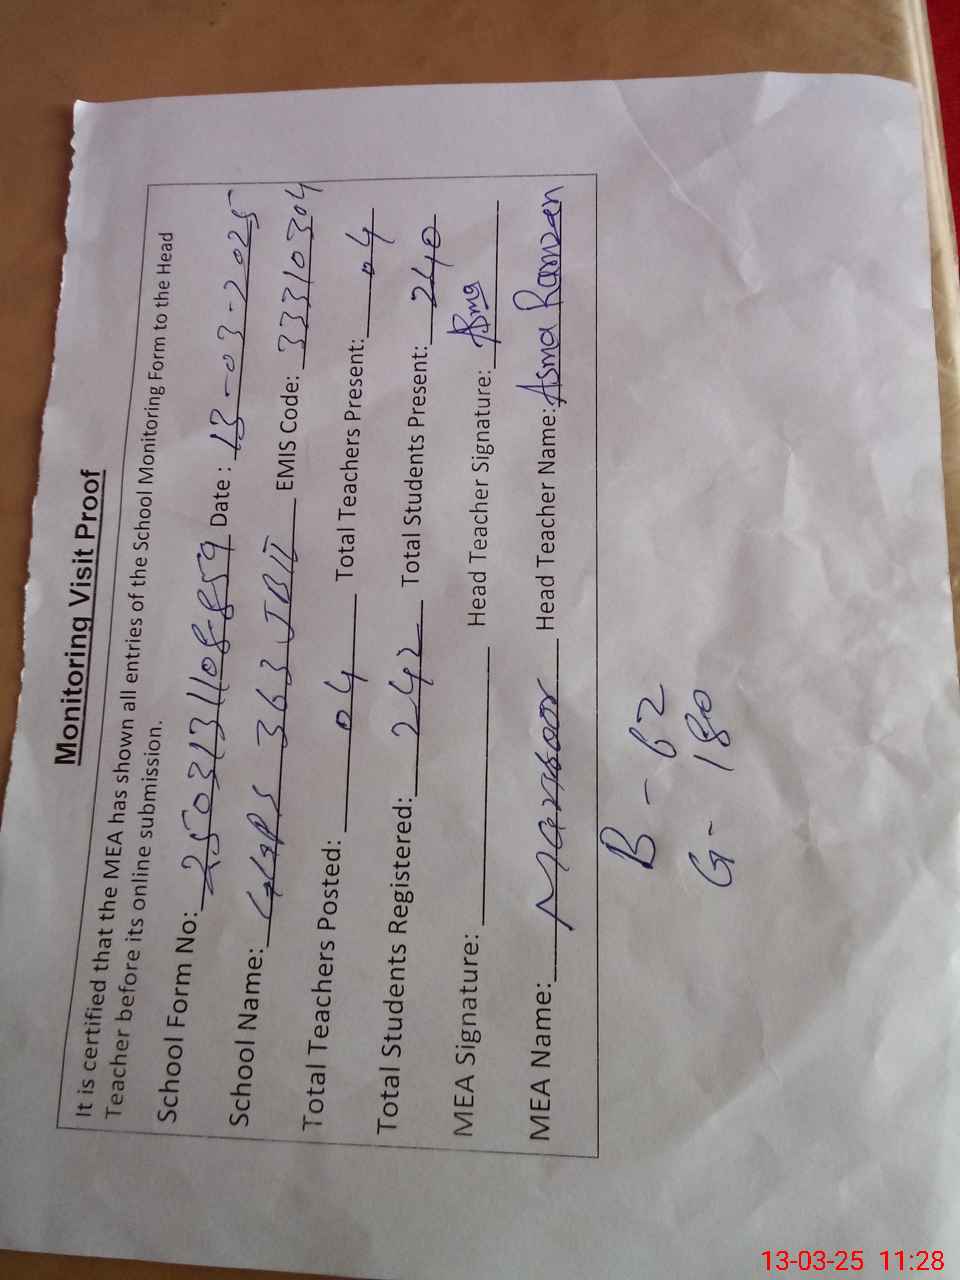 Monitoring Visit Proof
It is certified that the MEA has shown all entries of the School Monitoring Form to the Head
Teacher before its online submission.
School Form No: 2503131108859 Date : 13-03-2025
School Name: GGPS 363 JBII EMIS Code: 33310304
Total Teachers Posted: 04 Total Teachers Present: 04
Total Students Registered: 242 Total Students Present: 240
MEA Signature: Head Teacher Signature: Asma
MEA Name: Manzoor Head Teacher Name: Asma Ramzan
B - 62
G - 180
13-03-25 11:28